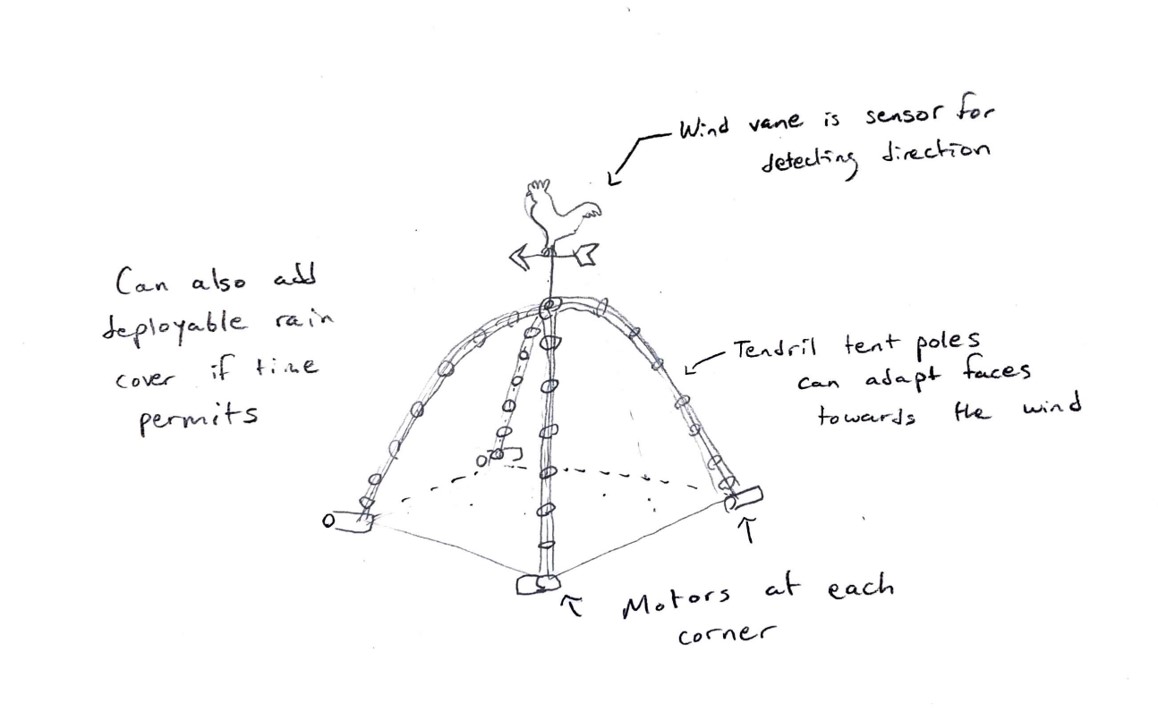 Wind vane is sensor for
detecting direction
Can also add
deployable rain
cover if time
permits
Tendril tent poles
can adapt faces
towards the wind
Motors at each
corner